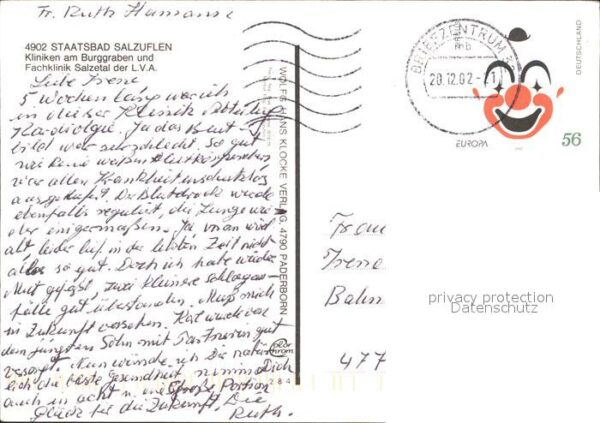 Fr. Ruth
4902 STAATSBAD SALZUFLEN
Kliniken am Burggraben und
Fachklinik Salzetal der L.V.A.
Liebe Irene
5 Wochen lang war ich
in dieser Klinik Abteilung
Kardiologie. Ja das Blut-
bild war sehr schlecht. So gut
wie keine weißen Blutkörperchen
war allen Krankheiten schutzlos
ausgeliefert. Der Blutdruck wurde
ebenfalls reguliert, die Lunge wie-
der einigermaßen. Ja, man wird
alt leider lief in der letzten Zeit nicht
alles so gut. Doch ich habe wieder
Mut gefaßt, zwei kleinere Schlagan-
fälle gut überstanden. Muß mich
in Zukunft vorsehen. Hat wurde von
dem jüngsten Sohn mit Partnerin gut
versorgt. Nun wünsche ich Dir natür-
lich die beste Gesundheit nimm Dich
auch in acht u. eine Große Portion
Glück für die Zukunft. Die
Ruth.
WOLFG. HANS KLOCKE VERLAG, 4790 PADERBORN
color chrom
284
BRIEFZENTRUM
mb
20.12.02
EUROPA
DEUTSCHLAND
56
Frau
Irene
Bahn
477
privacy protection
Datenschutz